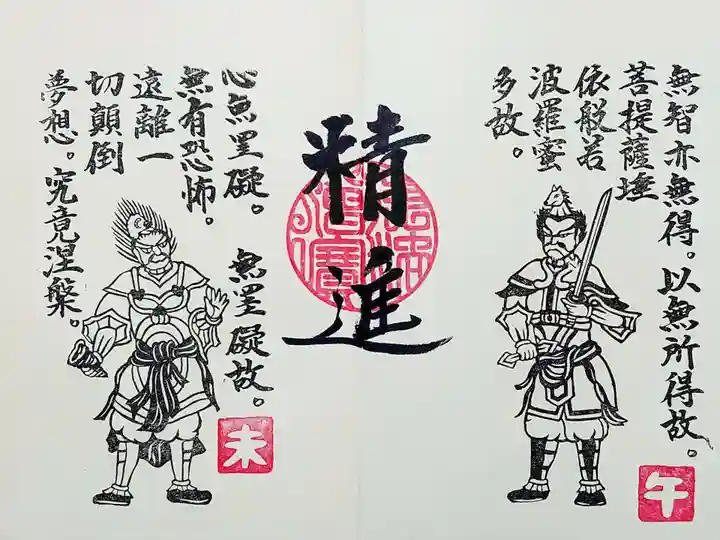 無智亦無得。以無所得故。
菩提薩埵
依般若
波羅蜜
多故。
午
精進
心無罣礙。
無罣礙故。
無有恐怖。
遠離一
切顛倒
夢想。究竟涅槃。
未